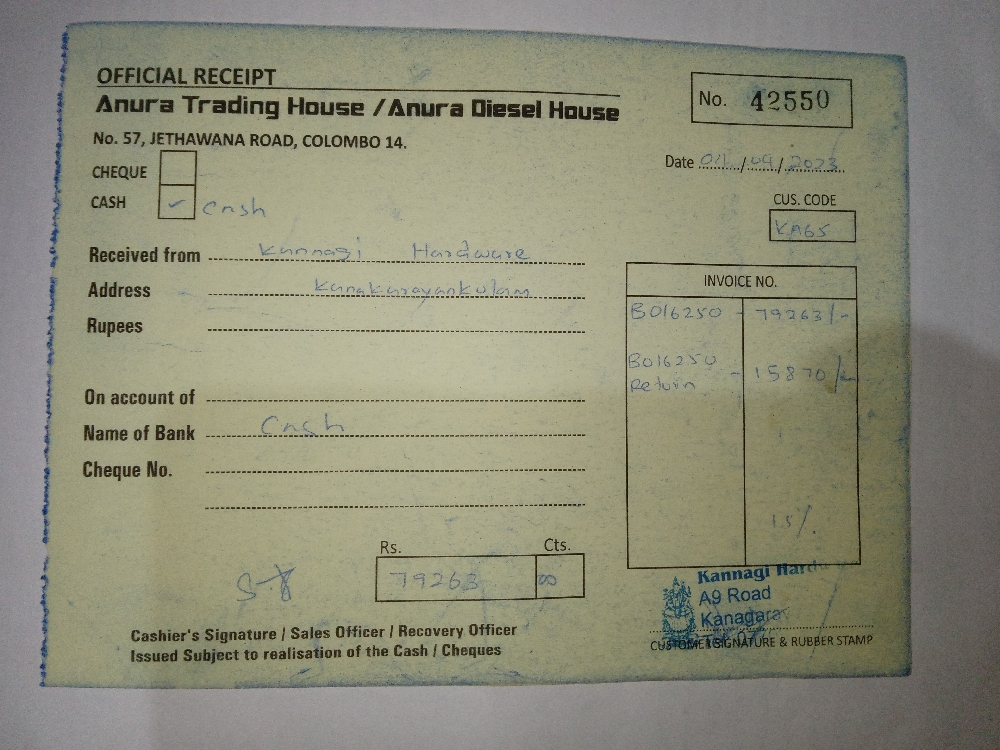 OFFICIAL RECEIPT
Anura Trading House / Anura Diesel House
No. 57, JETHAWANA ROAD, COLOMBO 14.
No. 42550
Date 01/09/2023
CHEQUE
CASH ✓ Cash
CUS. CODE
KA65
Received from Kannagi Hardware
Address Kanakarayankulam
Rupees
On account of
Name of Bank Cash
Cheque No.
INVOICE NO.
B016250 - 79263/-
B016250
Return - 15870/-
15%
Rs. Cts.
79263
Cashier's Signature / Sales Officer / Recovery Officer
Issued Subject to realisation of the Cash / Cheques
Kannagi
A9 Road
CUSTOMER SIGNATURE & RUBBER STAMP